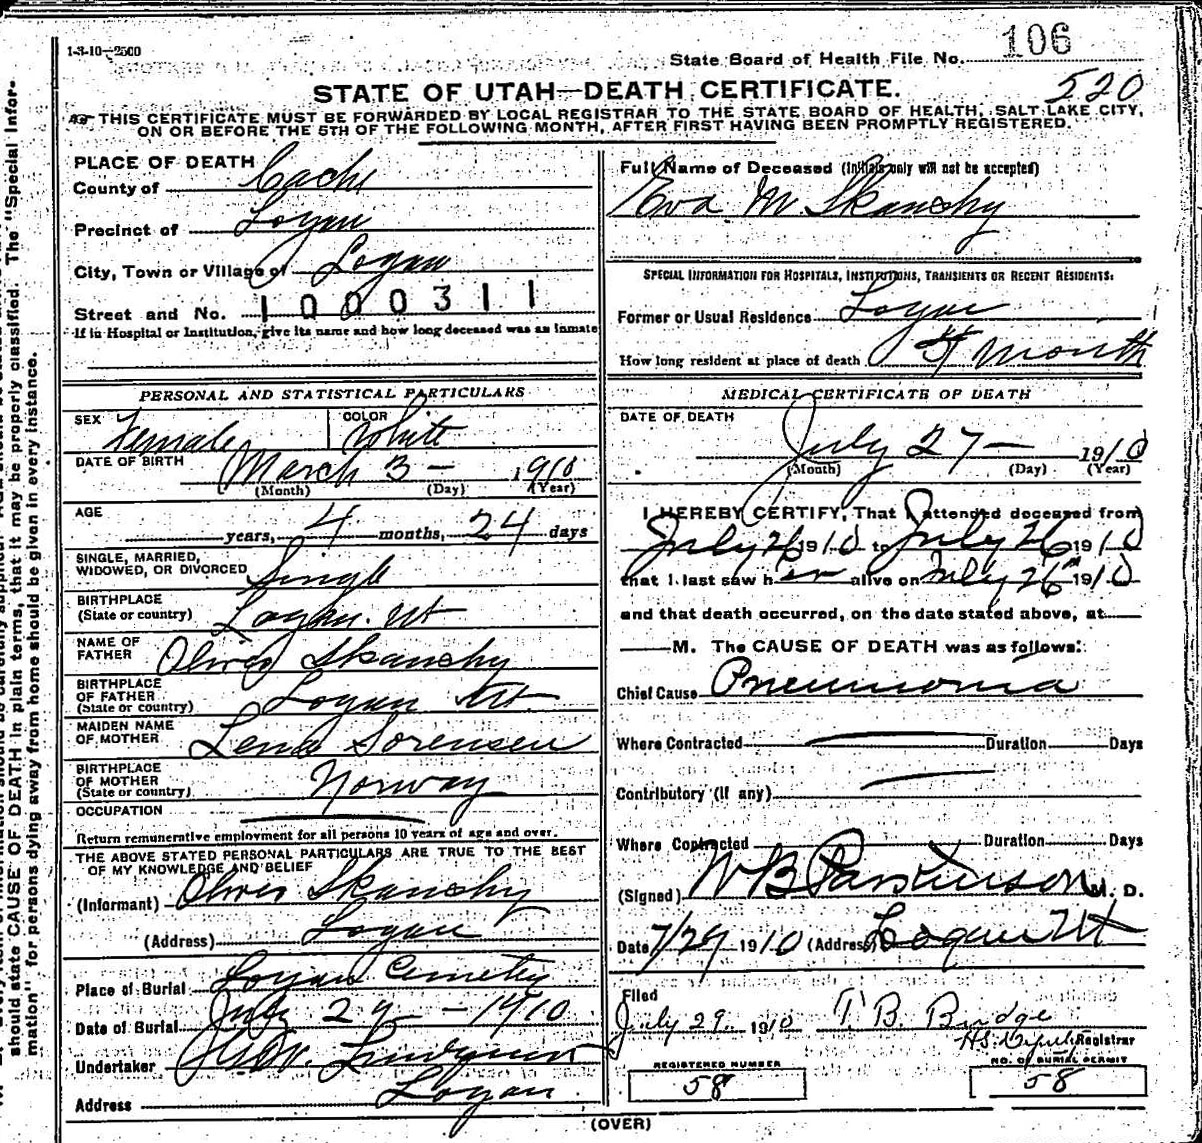 1-3-10—2500
State Board of Health File No. 106
520
STATE OF UTAH—DEATH CERTIFICATE.
THIS CERTIFICATE MUST BE FORWARDED BY LOCAL REGISTRAR TO THE STATE BOARD OF HEALTH, SALT LAKE CITY,
ON OR BEFORE THE 5TH OF THE FOLLOWING MONTH, AFTER FIRST HAVING BEEN PROMPTLY REGISTERED.
PLACE OF DEATH
County of Cache
Precinct of Logan
City, Town or Village of Logan
Street and No. 1000311
If in Hospital or Institution, give its name and how long deceased was an inmate
PERSONAL AND STATISTICAL PARTICULARS
SEX Female COLOR White
DATE OF BIRTH March 3 — 1910
(Month) (Day) (Year)
AGE
years, 4 months, 24 days
SINGLE, MARRIED,
WIDOWED, OR DIVORCED Single
BIRTHPLACE
(State or country) Logan. Ut
NAME OF
FATHER Oliver Skanchy
BIRTHPLACE
OF FATHER
(State or country) Logan Ut.
MAIDEN NAME
OF MOTHER Lena Sorensen
BIRTHPLACE
OF MOTHER
(State or country) Norway
OCCUPATION
Return remunerative employment for all persons 10 years of age and over.
THE ABOVE STATED PERSONAL PARTICULARS ARE TRUE TO THE BEST
OF MY KNOWLEDGE AND BELIEF
(Informant) Oliver Skanchy
(Address) Logan
Place of Burial Logan Cemetery
Date of Burial July 29 — 1910
Undertaker
Address Logan
Full Name of Deceased (Initials only will not be accepted)
Eva M Skanchy
SPECIAL INFORMATION FOR HOSPITALS, INSTITUTIONS, TRANSIENTS OR RECENT RESIDENTS.
Former or Usual Residence Logan
How long resident at place of death month
MEDICAL CERTIFICATE OF DEATH
DATE OF DEATH
July 27 — 1910
(Month) (Day) (Year)
I HEREBY CERTIFY, That I attended deceased from
July 26 1910 to July 26 1910
that I last saw her alive on July 26 1910
and that death occurred, on the date stated above, at
M. The CAUSE OF DEATH was as follows:
Chief Cause Pneumonia
Where Contracted Duration Days
Contributory (if any)
Where Contracted Duration Days
(Signed) W B Parkinson M. D.
Date 7/29 1910 (Address) Logan Ut
Filed
July 29. 1910 T. B. Budge
Registrar
REGISTERED NUMBER
58
NO. OF BURIAL PERMIT
58
(OVER)
should state CAUSE OF DEATH in plain terms, that it may be properly classified. The "Special Infor-
mation" for persons dying away from home should be given in every instance.